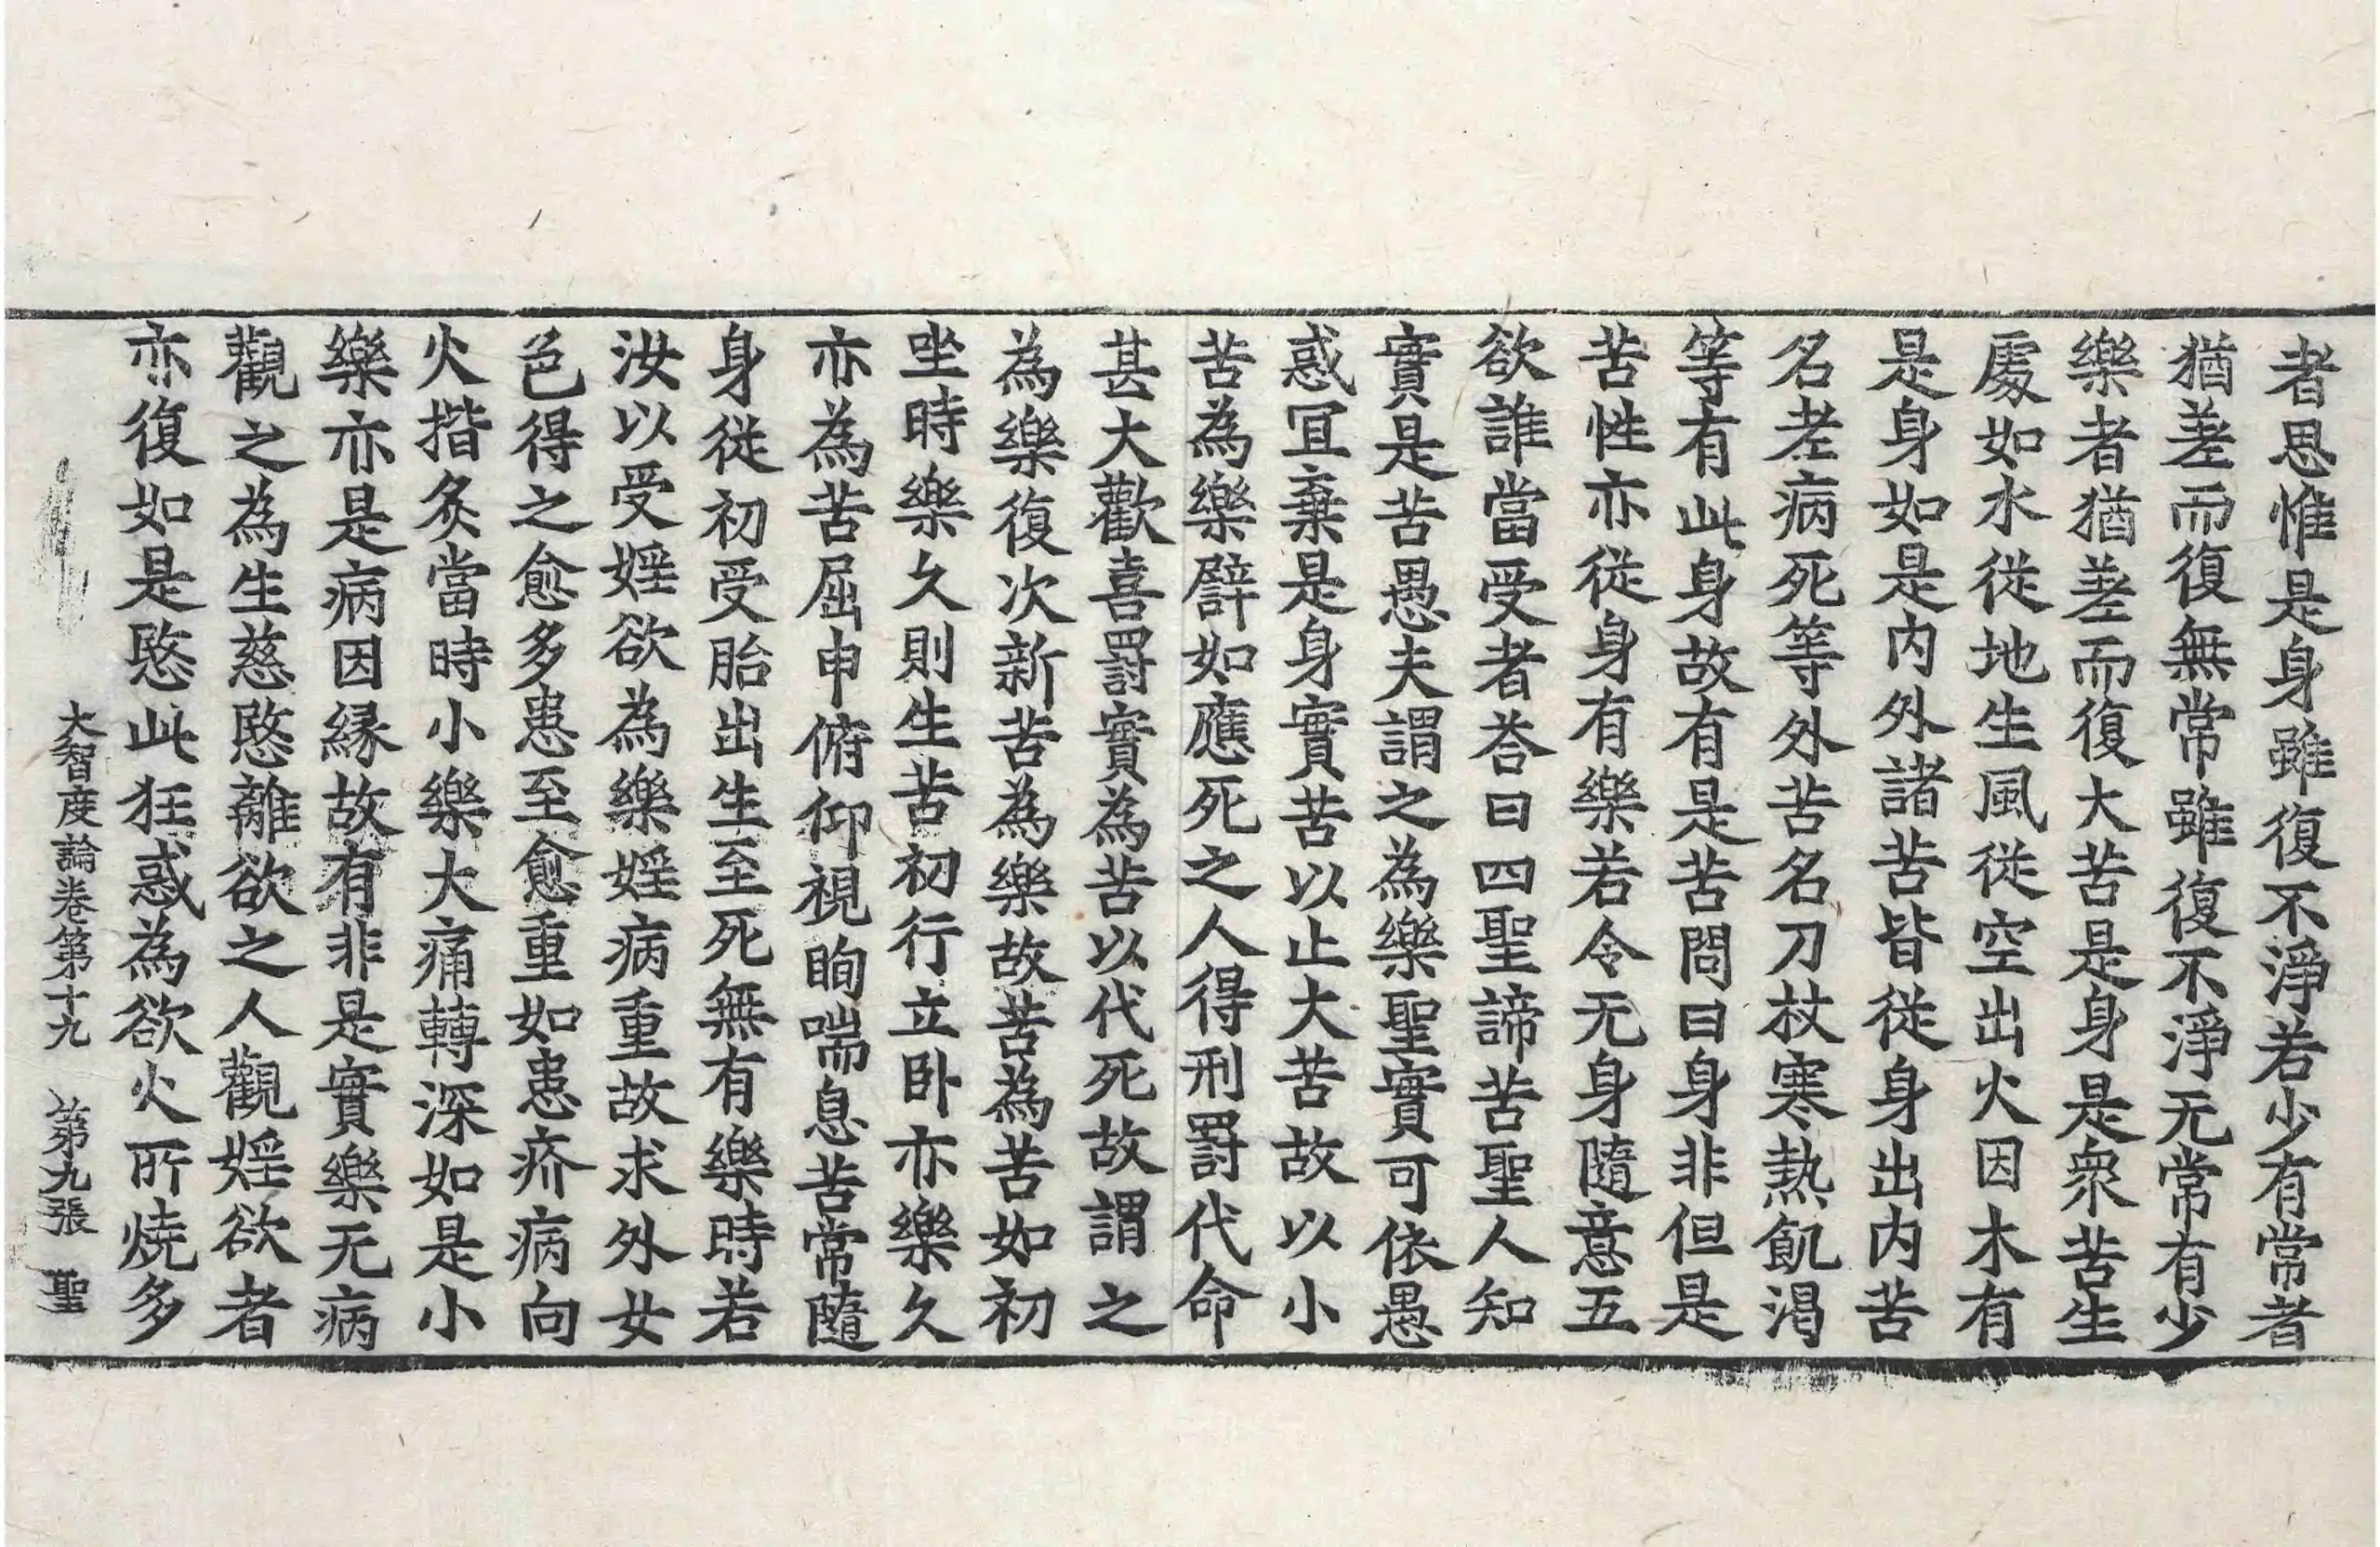 者思惟是身雖復不淨若少有常者
猶差而復無常雖復不淨无常有少
樂者猶差而復大苦是身是衆苦生
處如水從地生風從空出火因木有
是身如是内外諸苦皆從身出内苦
名老病死等外苦名刀杖寒熱飢渴
等有此身故有是苦問曰身非但是
苦性亦從身有樂若令无身隨意五
欲誰當受者荅曰四聖諦苦聖人知
實是苦愚夫謂之為樂聖實可依愚
惑冝棄是身實苦以止大苦故以小
苦為樂譬如應死之人得刑罸代命
甚大歡喜罸實為苦以代死故謂之
為樂復次新苦為樂故苦為苦如初
坐時樂久則生苦初行立卧亦樂久
亦為苦屈申俯仰視眴喘息苦常隨
身從初受胎出生至死無有樂時若
汝以受婬欲為樂婬病重故求外女
色得之愈多患至愈重如患疥病向
火揩炙當時小樂大痛轉深如是小
樂亦是病因縁故有非是實樂无病
觀之為生慈愍離欲之人觀婬欲者
亦復如是愍此狂惑為欲火所燒多
大智度論卷第十九 第九張 聖